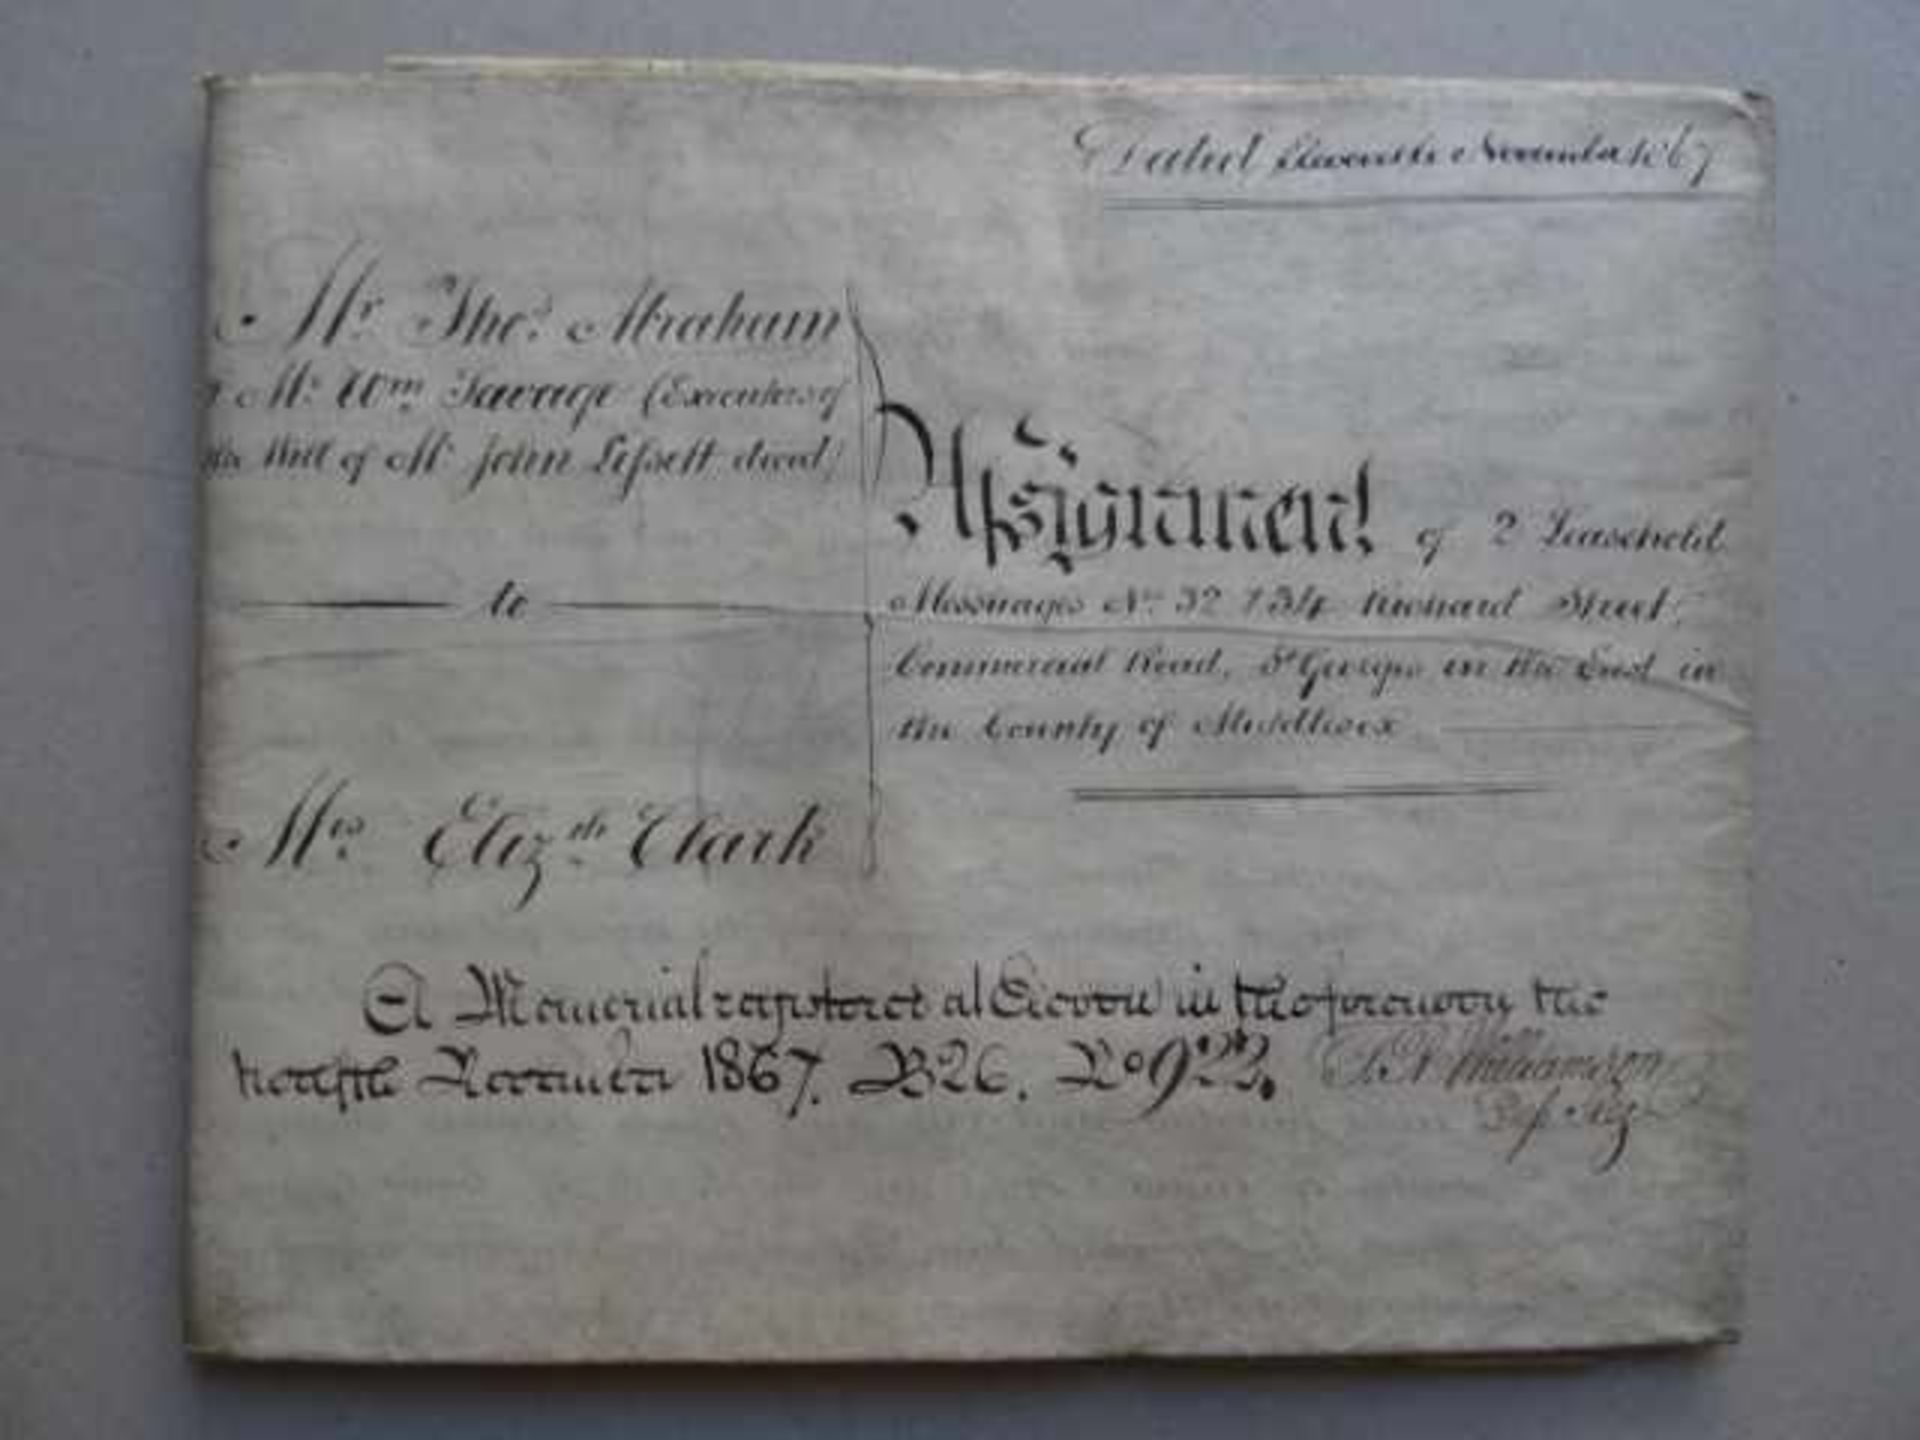 Dated Eleventh November 1867
Mr Thos. Abraham
& Mr Wm Savage (Executors of
the Will of Mr John Lessett decd)
to
Mrs Elizth Clark
Assignment of 2 Leasehold
Messuages Nos 32 & 34 Richard Street,
Commercial Road, St Georges in the East in
the County of Middlesex
A Memorial registered at Eleven in the forenoon the
twelfth November 1867. B26. No 922. Williamson
Dep. Reg